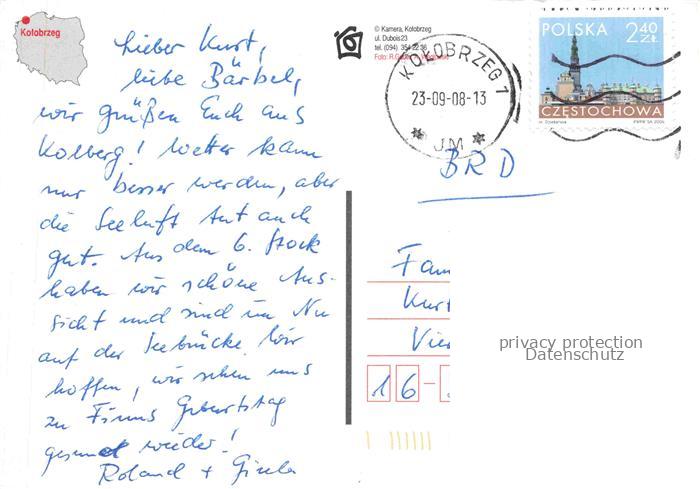 Kołobrzeg
Lieber Kurt,
liebe Bärbel,
wir grüßen Euch aus
Kolberg! Wetter kann
nur besser werden, aber
die Seeluft tut auch
gut. Aus dem 6. Stock
haben wir schöne Aus-
sicht und sind im Nu
auf der Seebrücke. Wir
hoffen, wir sehen uns
zu Finns Geburtstag
gesund wieder!
Roland + Gisela
© Kamera, Kołobrzeg
ul. Dubois 23
tel. (094) 354 22 36
Foto: R.
KOŁOBRZEG 1
23-09-08-13
JM
POLSKA 2,40
ZŁ
CZĘSTOCHOWA
PWPW SA 2005
BRD
Fam
Kurt
Vier
16-
privacy protection
Datenschutz